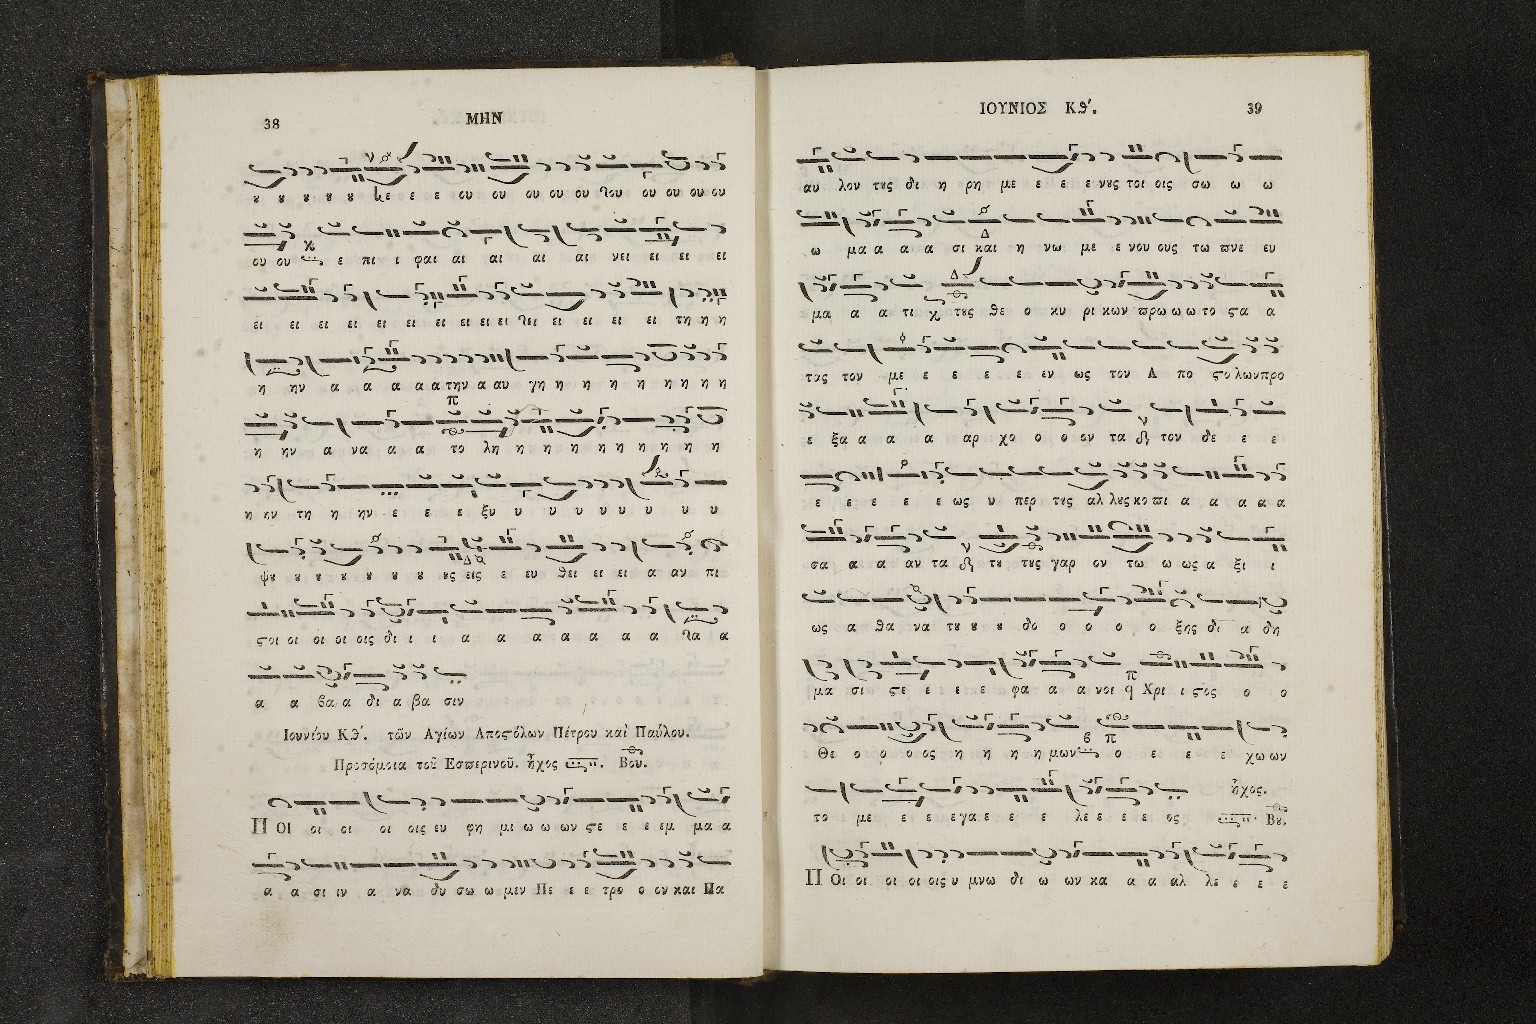 38 ΜΗΝ
ȣ ȣ ȣ ȣ ȣ με ε ε ου ου ου ου ου του ου ου ου ου
ου ου ε πι ι φαι αι αι αι αι νει ει ει ει
ει ει ει ει ει ει ει ει ει ει τει ει ει ει ει τη η η
η ην α α α α α την α αυ γη η η η η η η η η
η ην α να α α το λη η η η η η η η η η
η ην τη η ην ε ε ε ξυ υ υ υ υ υ υ υ υ
ψȣ ȣ ȣ ȣ ȣ ȣ ȣ ȣς εις ε ευ θει ει ει α αν πι
ϛοι οι οι οι οι οις δι ι ι α α α α α α α τα α
α α βα α δι α βα σιν
Ιουνίου Κθ΄. τῶν Αγίων Αποϛόλων Πέτρου καὶ Παύλου.
Προσόμοια τοῦ Εσπερινοῦ. ἦχος Βου.
Π οι οι οι οι οις ευ φη μι ω ω ων ϛε ε ε εμ μα α
α α σι ιν α να δυ σω ω μεν Πε ε ε τρο ο ον και Πα
ΙΟΥΝΙΟΣ Κθ΄. 39
αυ λον τȣς δι η ρη με ε ε ε νȣς τοι οις σω ω ω
ω μα α α α σι και η νω με ε νου ους τω πνε ευ
μα α α τι τȣς θε ο κυ ρι κων πρω ω ω το ϛα α
τας τον με ε ε ε ε εν ως τον Α πο ϛο λων προ
ε ξα α α α αρ χο ο ο ον τα τον δε ε ε
ε ε ε ε ε ως υ περ τȣς αλ λȣς κο πι α α α α α
σα α α αν τα τȣ τȣς γαρ ον τω ω ως α ξι ι
ως α θα να τȣ ȣ ȣ δο ο ο ο ο ξης δι α δη
μα σι ϛε ε ε ε φα α α νοι Χρι ι ϛος ο ο
Θε ο ο ο ος η η η η μων ο ε ε ε χω ων
το με ε ε ε γα ε ε ε λε ε ε ε ος ἦχος.
Βȣ.
Π Οι οι οι οι οις υ μνω δι ω ων κα α α αλ λε ε ε ε